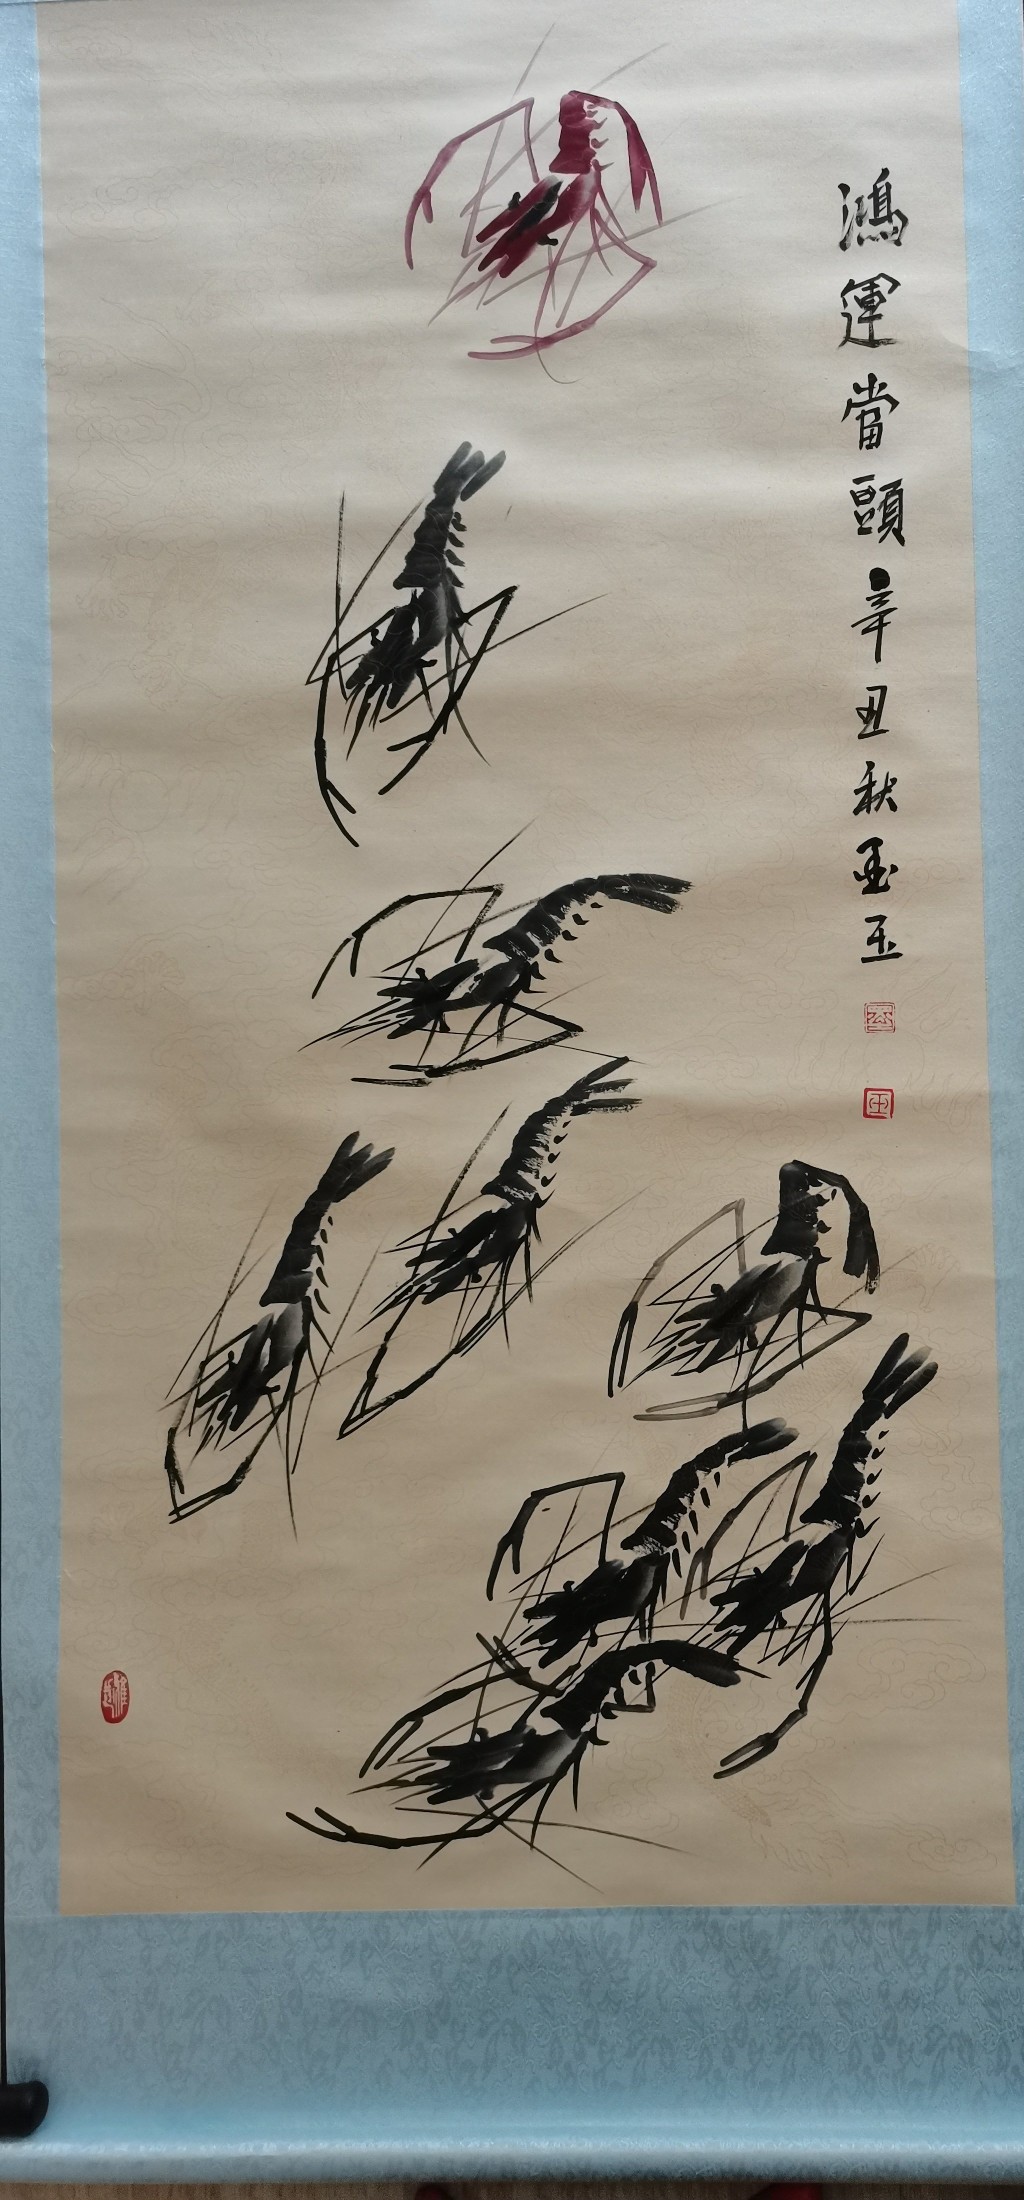 鴻運當頭辛丑秋墨玉